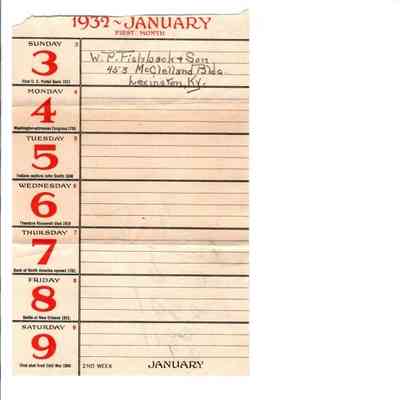 1932 ~ JANUARY
FIRST MONTH
SUNDAY 3
3
First U. S. Postal Bank 1911
W. P. Fishback & Son
453 McClelland Bldg
Lexington, Ky.
MONDAY 4
4
Washington addresses Congress 1790
TUESDAY 5
5
Indians capture John Smith 1608
WEDNESDAY 6
6
Theodore Roosevelt died 1919
THURSDAY 7
7
Bank of North America opened 1782
FRIDAY 8
8
Battle of New Orleans 1815
SATURDAY 9
9
First shot from Civil War 1861
2ND WEEK
JANUARY